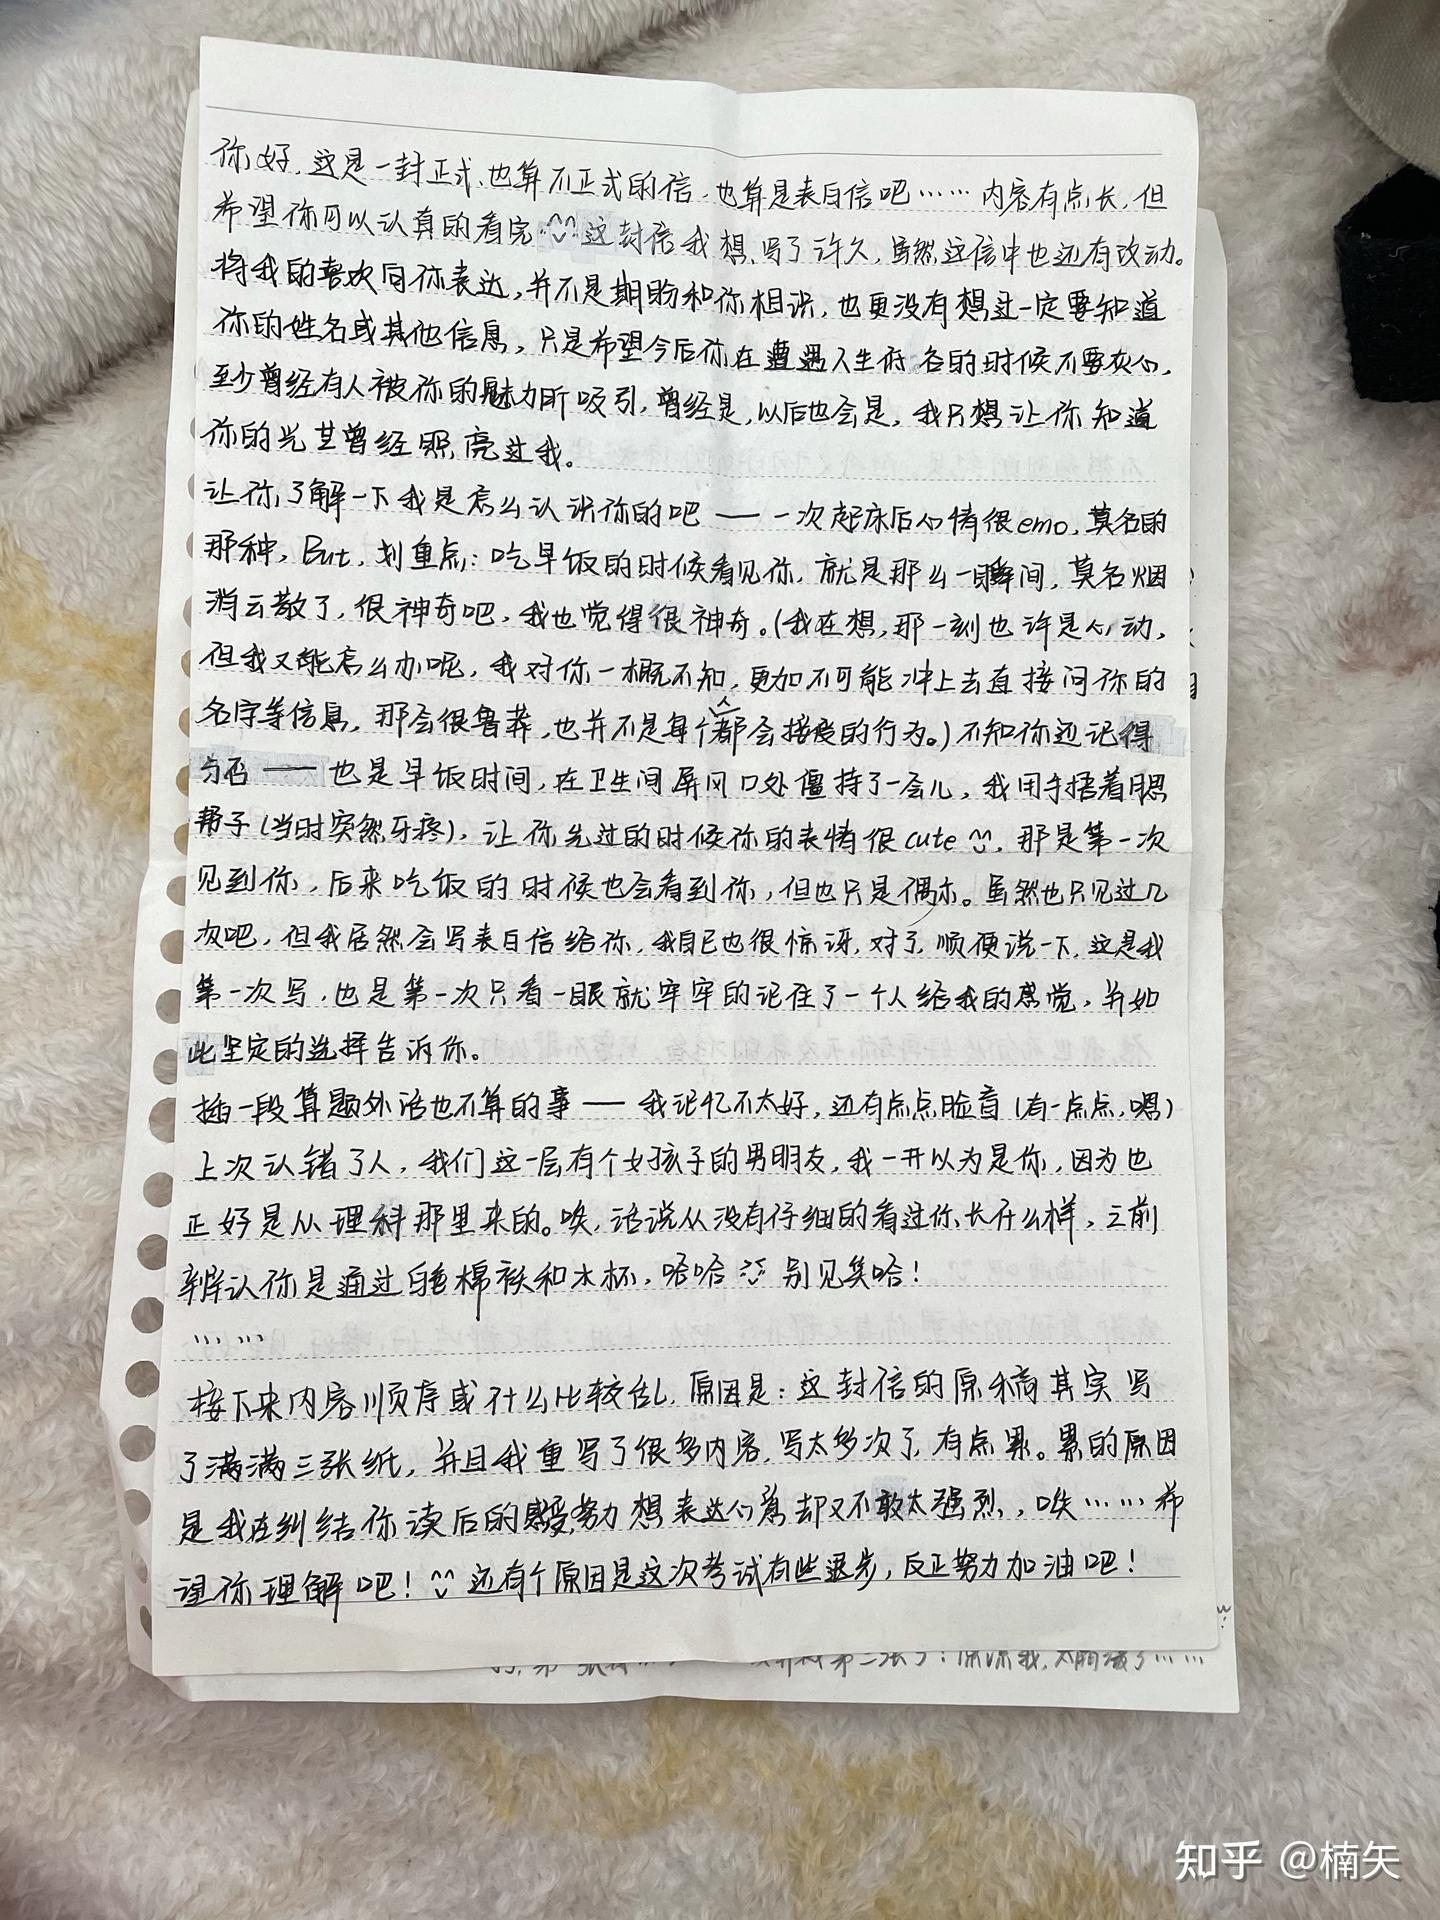 你好，这是一封正式、也算不正式的信，也算是表白信吧……内容有点长，但
希望你可以认真的看完 这封信我想、写了许久，虽然这信中也还有改动。
将我的喜欢向你表达，并不是期盼和你相识，也更没有想过一定要知道
你的姓名或其他信息，只是希望今后你在遭遇人生你名的时候不要灰心，
至少曾经有人被你的魅力所吸引，曾经是，以后也会是，我只想让你知道
你的光芒曾经照亮过我。
让你了解一下我是怎么认识你的吧——一次起床后心情很emo，莫名的
那种，But，划重点：吃早饭的时候看见你，就是那么一瞬间，莫名烟
消云散了，很神奇吧，我也觉得很神奇。(我在想，那一刻也许是心动，
但我又能怎么办呢，我对你一概不知，更加不可能冲上去直接问你的
名字等信息，那会很鲁莽，也并不是每个人都会接受的行为。)不知你还记得
与否——也是早饭时间，在卫生间屏风口处僵持了一会儿，我用手捂着腮
帮子(当时突然牙疼)，让你先过的时候你的表情很cute，那是第一次
见到你，后来吃饭的时候也会看到你，但也只是偶尔。虽然也只见过几
次吧，但我居然会写表白信给你，我自己也很惊讶，对了，顺便说一下，这是我
第一次写，也是第一次只看一眼就牢牢的记住了一个人给我的感觉，并如
此坚定的选择告诉你。
插一段算题外话也不算的事——我记忆不太好，还有点点脸盲(有一点点，嗯)
上次认错了人，我们这一层有个女孩子的男朋友，我一开以为是你，因为也
正好是从理科那里来的。唉，话说从没有仔细的看过你长什么样，之前
辨认你是通过白色棉袄和水杯，哈哈 别见笑哈！
……
接下来内容顺序或什么比较乱，原因是：这封信的原稿其实写
了满满三张纸，并且我重写了很多内容，写太多次了，有点累。累的原因
是我在纠结你读后的感受，努力想表达心意却又不敢太强烈，唉……希
望你理解吧！还有个原因是这次考试有些退步，反正努力加油吧！
第二张了！原谅我，太
知乎 @楠矢